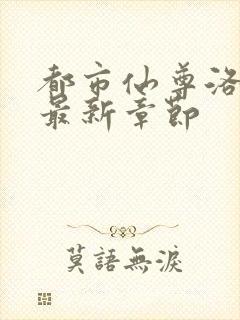 都市仙尊洛
最新章節
莫語無淚